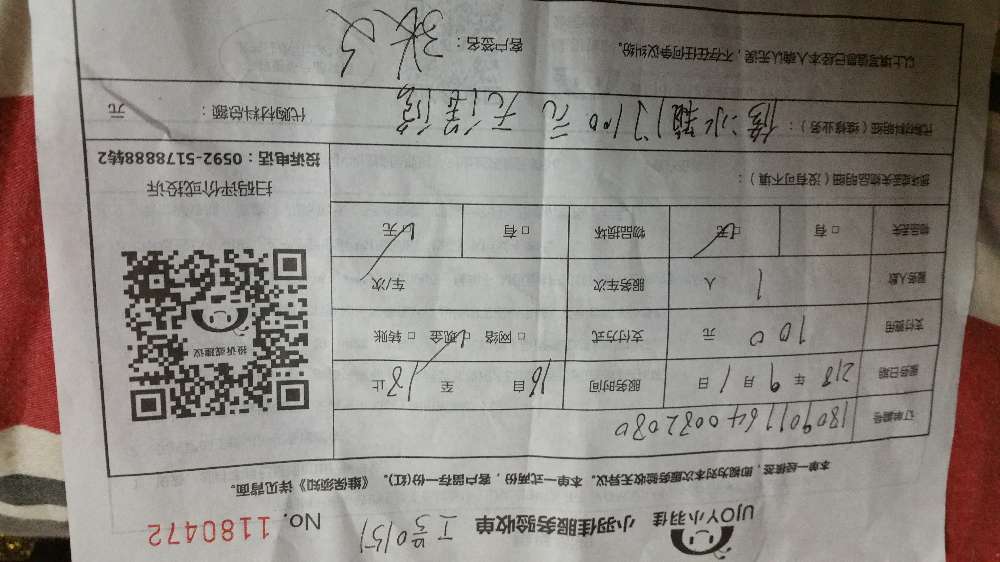 UJOY小羽佳
小羽佳服务验收单 工号0151 No. 1180472
本单一经接签，即视为对本次服务验收无异议。本单一式两份，客户留存一份(红)。《维保须知》详见背面。
订单编号 180901164003 2080
服务日期 218年9月1日 服务时间 16自 至 18止
支付费用 100元 支付方式 □网络 ☑现金 □转账
服务人数 1人 服务车次 车/次
物品丢失 □有 ☑无 物品损坏 □有 ☑无
损坏或丢失物品明细（没有可不填）：
投诉或建议
扫码评价或投诉
投诉电话：0592-5178888转2
代购材料明细（维修业务）： 修冰箱门100元 无保修
代购材料总额： 元
以上填写信息已经本人确认无误，不存在任何争议纠纷。
客户签名：